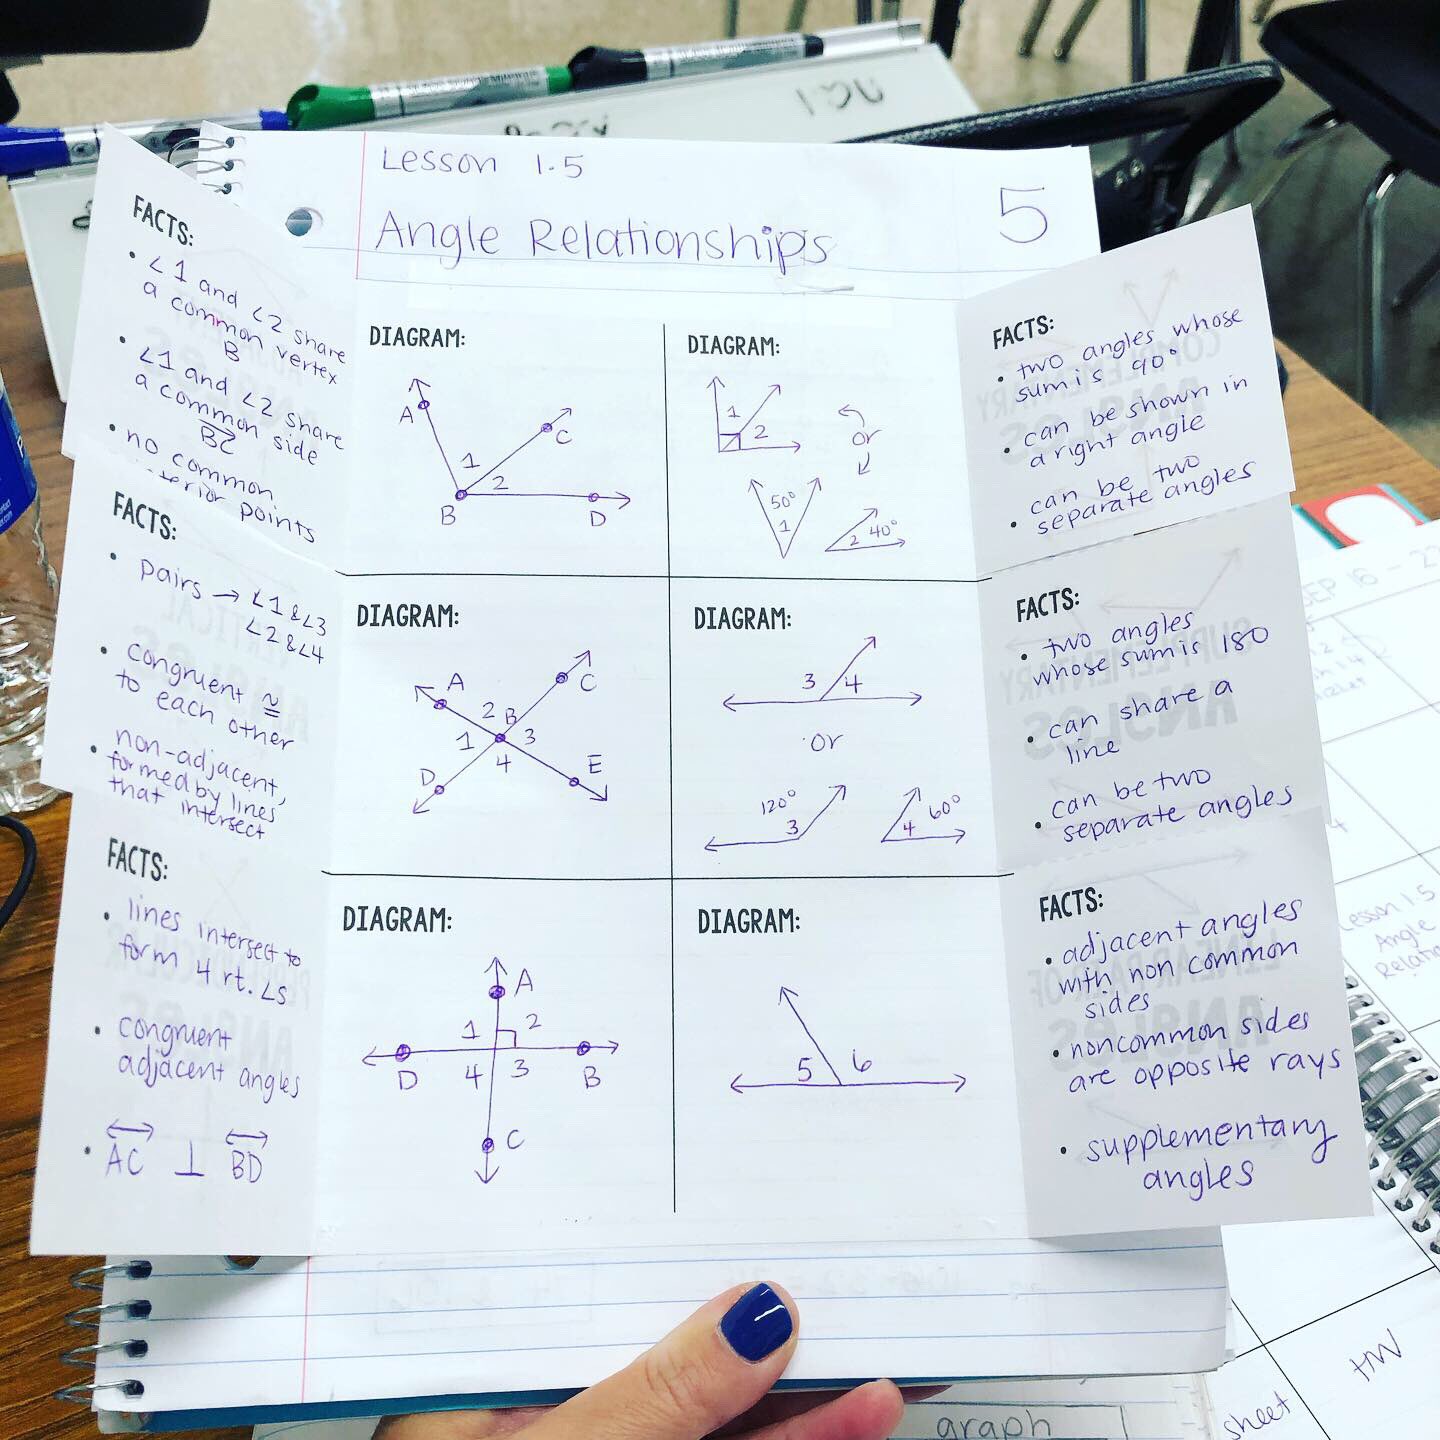 Lesson 1.5
5
Angle Relationships
FACTS:
• ∠1 and ∠2 share
a common vertex
B
• ∠1 and ∠2 share
a common side
BC
• no common
interior points
DIAGRAM:
A
1
C
2
B
D
DIAGRAM:
1
2
or
50°
1
2 40°
FACTS:
• two angles whose
sum is 90°
• can be shown in
a right angle
• can be two
separate angles
FACTS:
• pairs → ∠1 & ∠3
∠2 & ∠4
• congruent ≅
to each other
• non-adjacent,
formed by lines
that intersect
DIAGRAM:
A
C
2 B
1 3
4
D
E
DIAGRAM:
3 4
or
120°
3
60°
4
FACTS:
• two angles
whose sum is 180
• can share a
line
• can be two
separate angles
FACTS:
• lines intersect to
form 4 rt. ∠s
• congruent
adjacent angles
• AC ⊥ BD
DIAGRAM:
A
1 2
D 4 3 B
C
DIAGRAM:
5 6
FACTS:
• adjacent angles
with non common
sides
• noncommon sides
are opposite rays
• supplementary
angles
SEP 16 -
Lesson 1.5
Angle
HW
sheet
graph